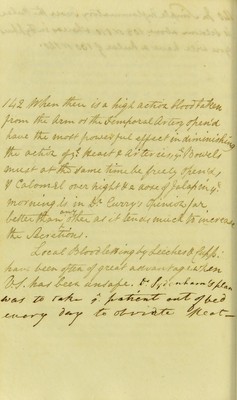 142 When there is a high action blood taken
from the Arm or the Temporal Artery opened
have the most powerful effect in diminishing
the action of ye Heart & Arteries, ye Bowels
must at the same time be freely opened,
& Calomel over night & a dose of Jalap in ye
morning is in Dr Currys opinion far
better than other as it tends much to increase
the Secretions.
Local Bloodletting by Leeches &
have been often of great advantage when
B.S. has been unsafe. Dr plan
was to take ye patient out of bed
every day to obviate Heat